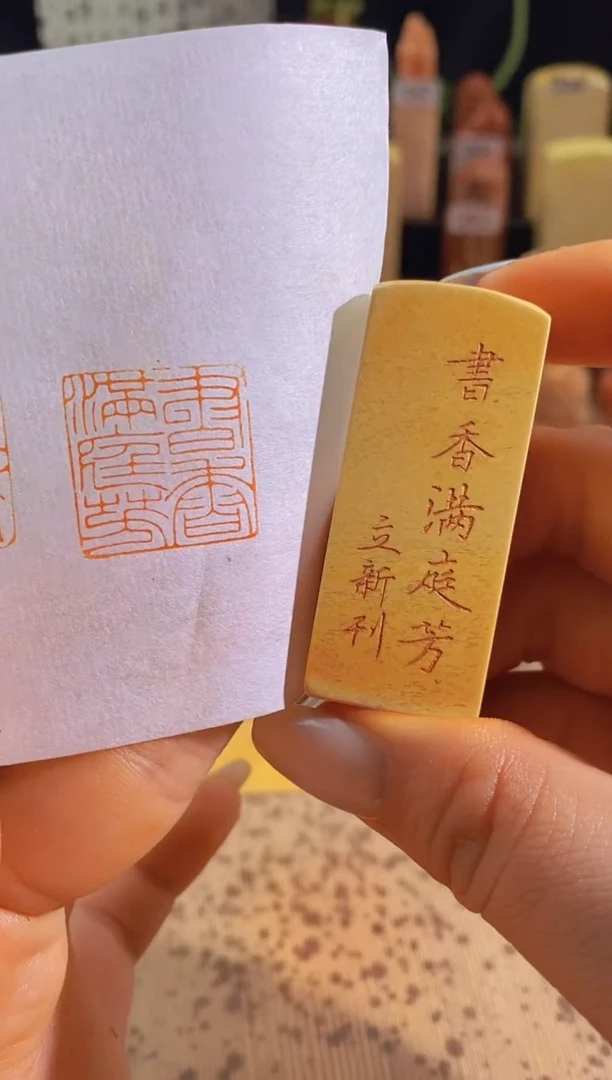 書香滿庭芳
書香滿庭芳
立新刊